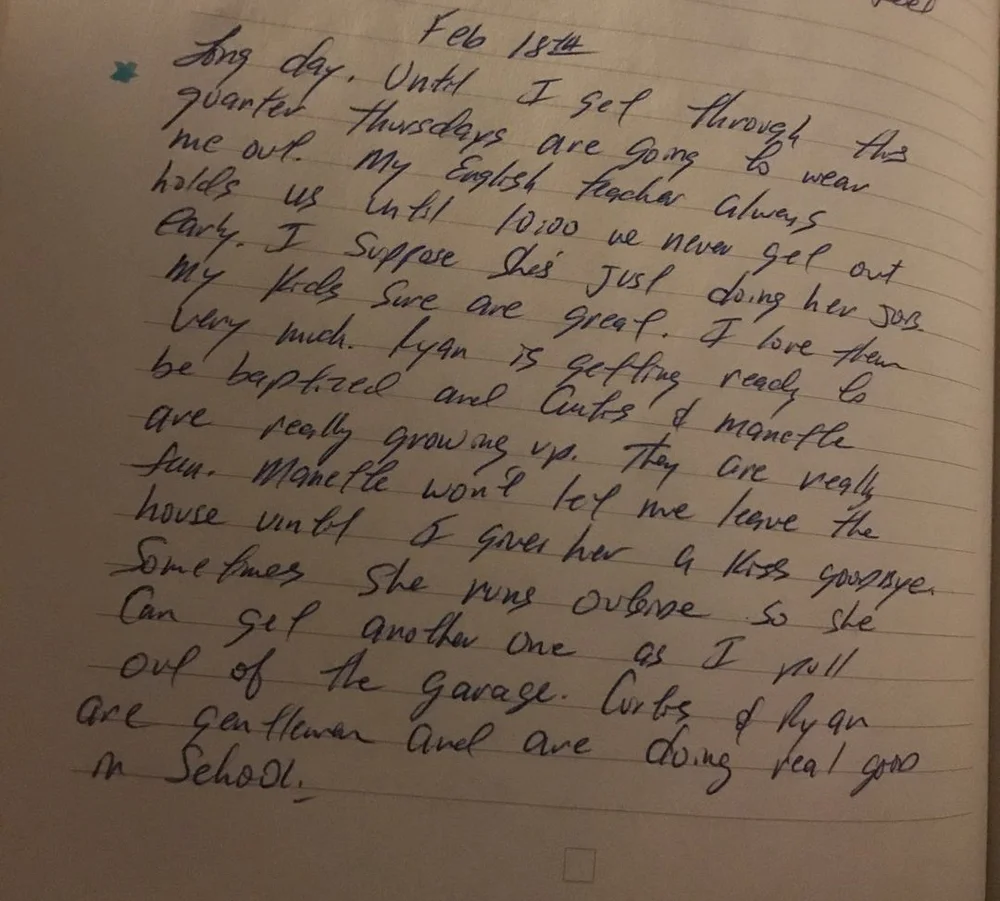 Feb 18th
Long day. Until I get through this
quarter Thursdays are going to wear
me out. My English teacher always
holds us until 10:00 we never get out
early. I suppose she's just doing her job.
My kids sure are great. I love them
very much. Ryan is getting ready to
be baptized and Curtis & Manette
are really growing up. They are really
fun. Manette won't let me leave the
house until I gives her a kiss goodbye.
Sometimes she runs outside so she
can get another one as I pull
out of the garage. Curtis & Ryan
are gentleman and are doing real good
in School.